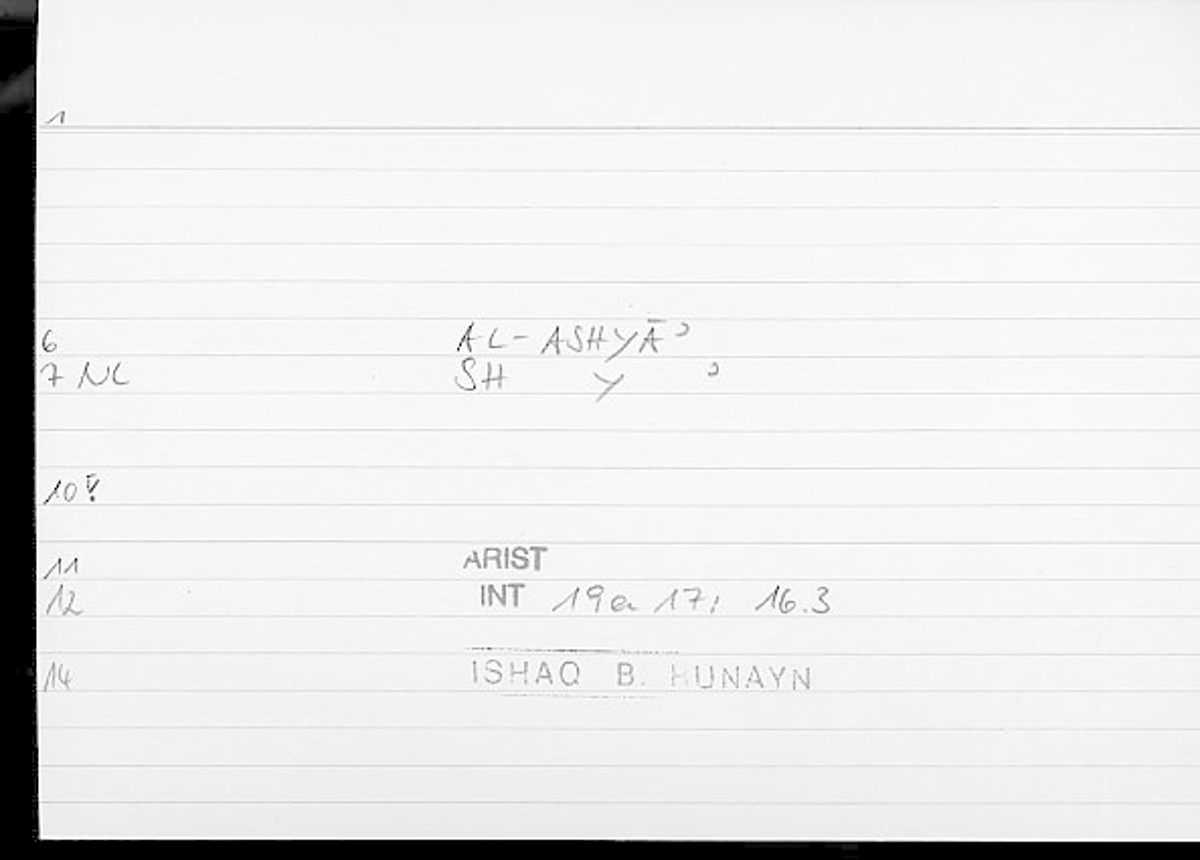 1
6 AL-ASHYĀʾ
7 NL SH Y ʾ
10 !
11 ARIST
12 INT 19a 17; 16.3
14 ISHAQ B. HUNAYN